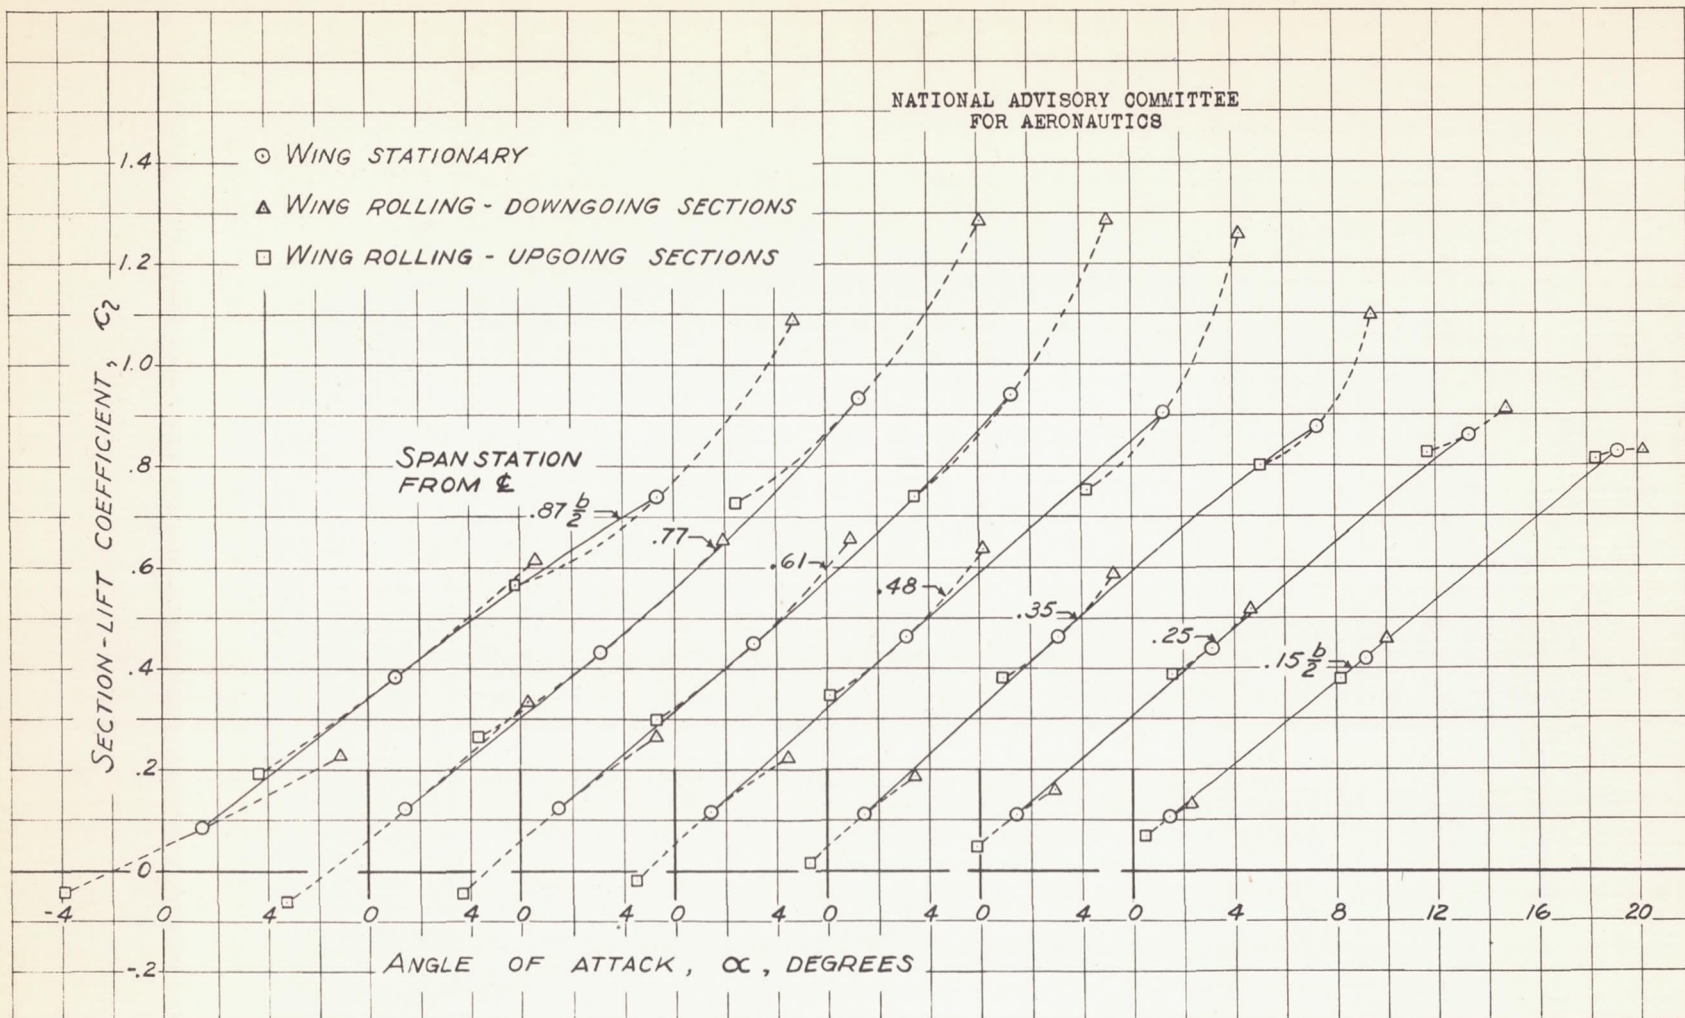 NATIONAL ADVISORY COMMITTEE
FOR AERONAUTICS
WING STATIONARY
WING ROLLING - DOWNGOING SECTIONS
WING ROLLING - UPGOING SECTIONS
1.4
1.2
1.0
.8
.6
.4
.2
0
-.2
SECTION-LIFT COEFFICIENT, c_l
SPAN STATION
FROM ℄
.87 b/2
.77
.61
.48
.35
.25
.15 b/2
-4 0 4 0 4 0 4 0 4 0 4 0 4 0 4 8 12 16 20
ANGLE OF ATTACK, α, DEGREES